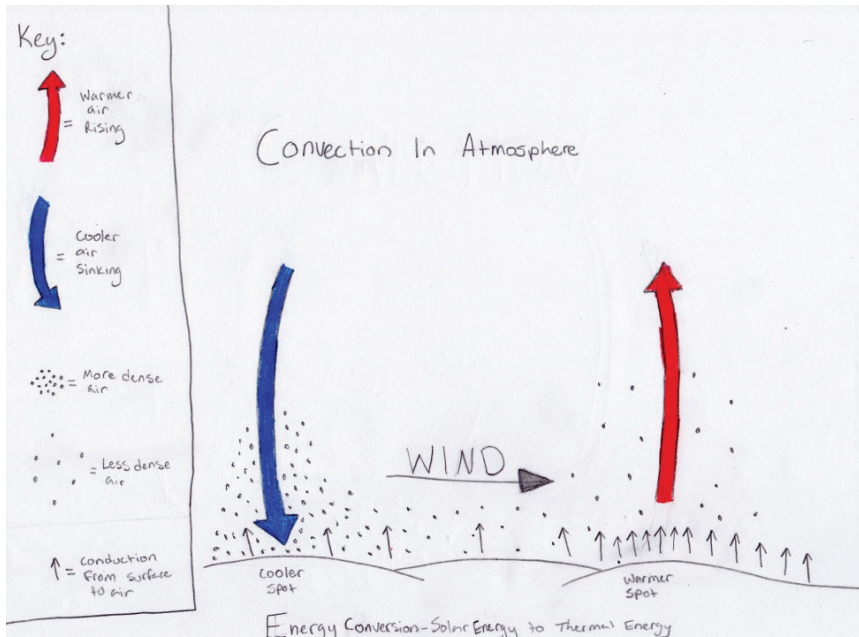 Key:
= Warmer
air
Rising
= Cooler
air
Sinking
= More dense
air
= Less dense
air
= conduction
From surface
to air
Convection In Atmosphere
WIND
Cooler
Spot
Warmer
Spot
Energy Conversion-Solar Energy to Thermal Energy